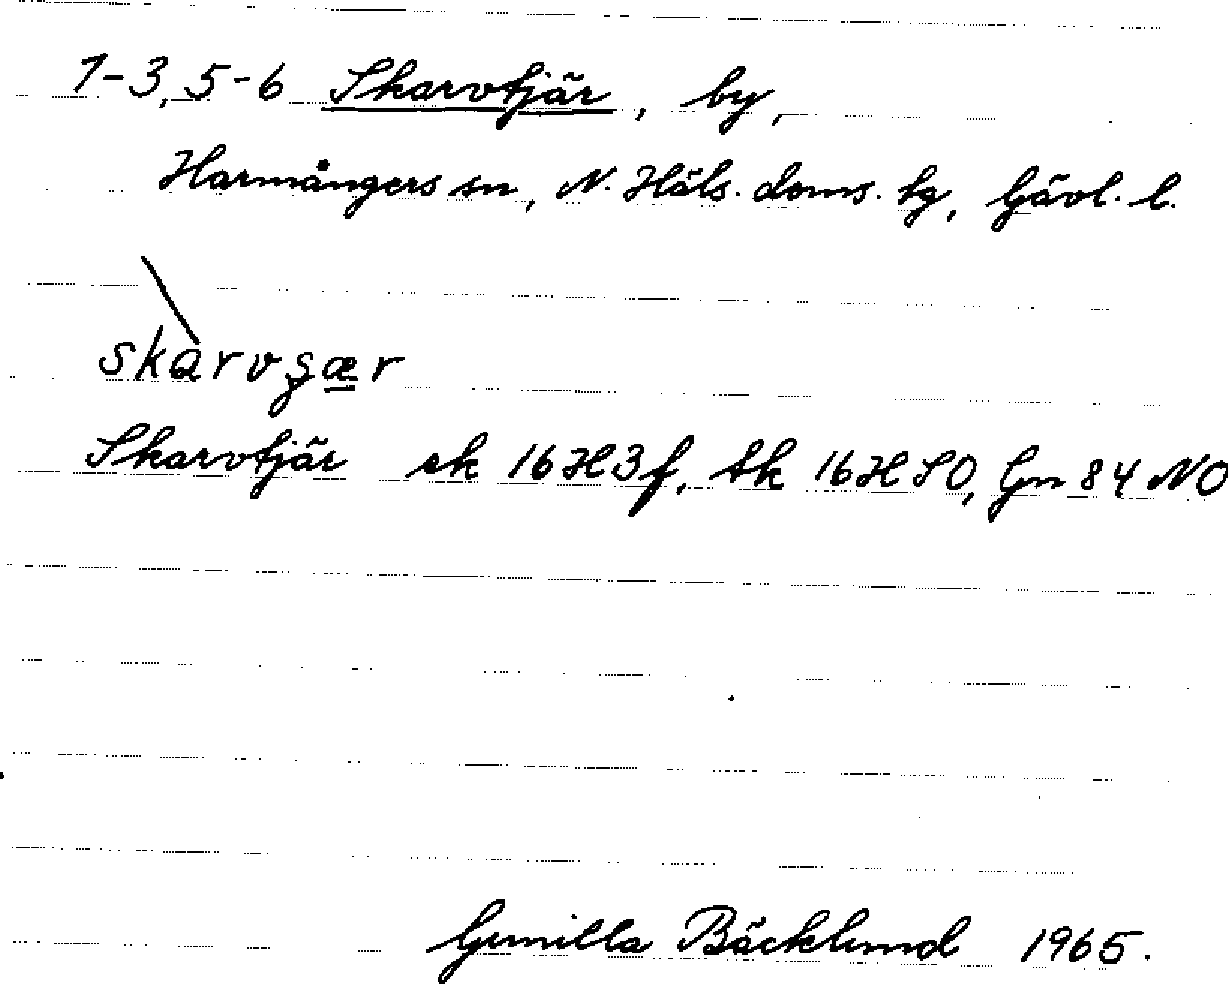 1-3, 5-6 Skarvtjär, by,
Harmångers sn, N. Häls. doms. hg, Gävl. l.
skàrvʒær
Skarvtjär ek 16H3f, tk 16H SO, Gm 84 NO
Gunilla Bäcklund 1965.